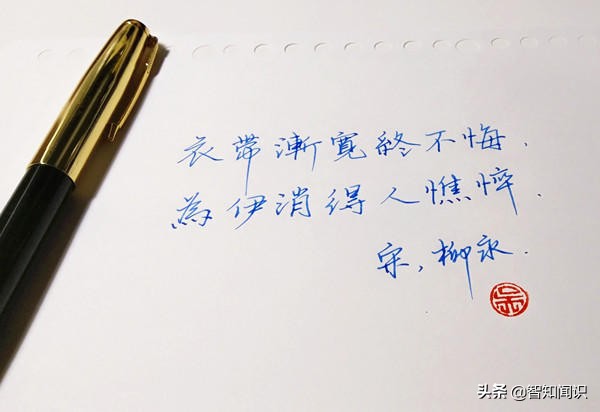 衣帶漸寬終不悔.
為伊消得人憔悴.
宋,柳永.
头条 @智知闻识